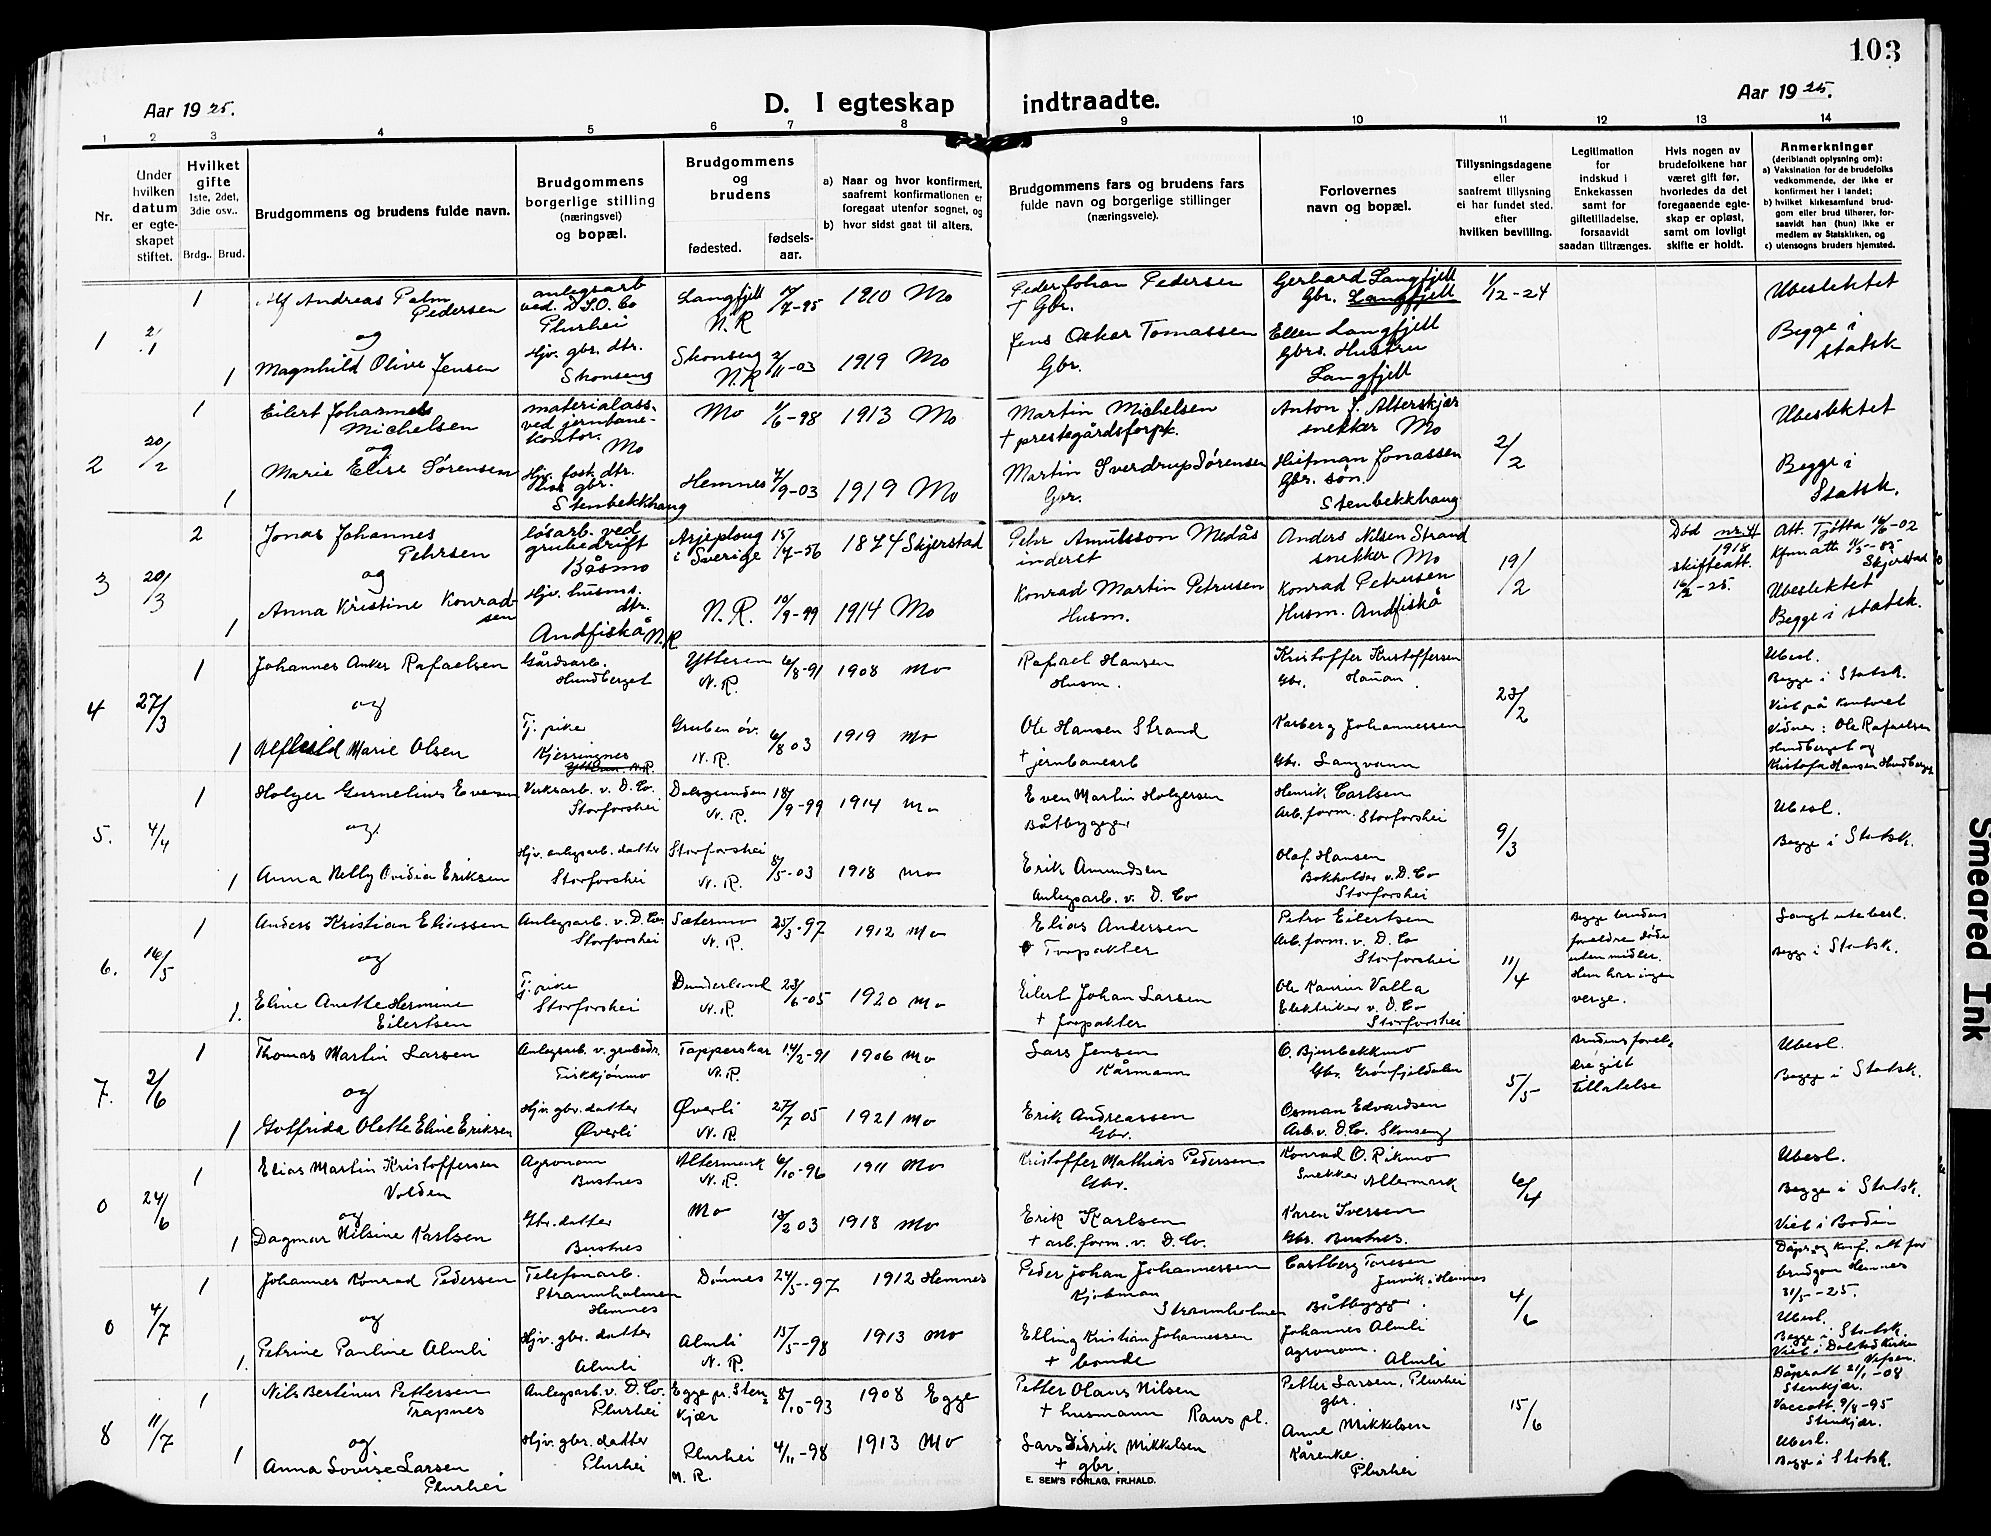 103
Aar 1925.
D. I egteskap indtraadte.
Aar 1925.
1 2 3 4 5 6 7 8 9 10 11 12 13 14
Nr.
Under hvilken datum er egteskapet stiftet.
Hvilket gifte 1ste, 2det, 3die osv..
Brdg.. Brud.
Brudgommens og brudens fulde navn.
Brudgommens borgerlige stilling (næringsvei) og bopæl.
Brudgommens og brudens
fødested.
fødselsaar.
a) Naar og hvor konfirmert, saafremt konfirmationen er foregaat utenfor sognet, og
b) hvor sidst gaat til alters.
Brudgommens fars og brudens fars fulde navn og borgerlige stillinger (næringsveie).
Forlovernes navn og bopæl.
Tillysningsdagene eller saafremt tillysning ei har fundet sted. efter hvilken bevilling.
Legitimation for indskud i Enkekassen samt for giftetilladelse, forsaavidt saadan tiltrænges.
Hvis nogen av brudefolkene har været gift før, hvorledes da det foregaaende egteskap er opløst, samt om lovligt skifte er holdt.
Anmerkninger (deriblandt oplysning om):
a) Vaksination for de brudefolks vedkommende, der ikke er konfirmert her i landet;
b) hvilket kirkesamfund brudgom eller brud tilhører, forsaavidt han (hun) ikke er medlem av Statskirken, og
c) utensogns bruders hjemsted.
1 2/1 1 Alf Andreas Palm Pedersen anlegsarb ved. D.S.O. Co Plurhei Langfjell N.R 7-95 1910 Mo Peder Johan Pedersen + Gbr. Gerhard Langfjell Gbr. Langfjell 1/12-24 Ubeslektet
og
1 Magnhild Olive Jensen Hjv. gbr. dtr. Skonseng Skonseng N.R 2/11-03 1919 Mo Jens Oskar Tomassen Gbr. Ellen Langfjell Gbrs. Hustru Langfjell Begge i statsk
2 20/2 1 Eilert Johannes Michelsen materialass. ved jernbanekontor. Mo Mo 1/6-98 1913 Mo Martin Michelsen + prestegårdsforpk. Anton J. Alterskjær snekker Mo 2/2 Ubeslektet
og
1 Marie Elise Sørensen Hjv. fosk. dtr. hos gbr. Stenbekkhaug Hemnes 4/9-03 1919 Mo Martin Sverdrup Sørensen Gbr. Heitman Jonassen Gbr. søn Stenbekkhaug Begge i Statsk.
3 20/3 2 Jonas Johannes Pehrsen løsarb. ved grubedrift Båsmo Arjeploug i Sverige 15/7-56 1874 Skjerstad Pehr Amulsson Medås inderst Anders Nilsen Strand snekker Mo 19/2 Død nr. 4 1918 skifteatt. 16/2-25. Att. Tjøtta 16/6-02 Kfmatt. 11/5-85 Skjerstad
og
1 Anna Kristine Konradsen Hjv. husmd. dtr. Andfiskå N.R N.R. 10/9-99 1914 Mo Konrad Martin Petersen Husm. Konrad Petersen Husm. Andfiskå Ubeslektet Begge i statsk.
4 27/3 1 Johannes Anker Rafaelsen Gårdsarb. Hundberget Ytteren N.R. 6/8-91 1908 Mo Rafael Hansen Husm. Kristoffer Kristoffersen Gbr. Hauan. 23/2 Ubesl. Begge i Statsk.
og
1 Alfhild Marie Olsen Tj. pike Kjerringnes Ytteren N.R. Gruben øv. N.R. 6/8 03 1919 Mo Ole Hansen Strand + jernbanearb Karberg Johannessen Gbr. Langvann Viet på Kontoret Vidner: Ole Rafaelsen Hundberget og Kristofa Hansen Hundberget
5. 4/4 1 Holger Gurnelius Evensen Verksarb. v. D. Co. Storforshei Dalsgrunden N.R. 18/9-99 1914 Mo Even Martin Holgersen Båtbygger Henrik Carlsen Arb. form. Storforshei 9/3 Ubesl.
og
1 Anna Nelly Ovidia Eriksen Hjv. anlegsarb. datter Storforshei Storforshei N.R. 8/5-03 1918 Mo Erik Amundsen Anlegsarb. v. D. Co Olaf Hansen Bokholder v. D. Co Storforshei Begge i Statsk.
6. 16/5 1 Anders Kristian Eliassen Anlegsarb. v. D. Co. Storforshei Sætermo N.R. 25/3-97 1912 Mo Elias Andersen Forpakter Petra Eilertsen Arb. form. v. D. Co Storforshei 11/4 Begge brudens foreldre døde uten midler. Hun har ingen verge. Langt ute besl.
og
1. Eline Anette Hermine Eilertsen Tj. pike Storforshei Dunderland N.R. 23/6-05 1920 Mo Eilert Johan Larsen + forpakter Ole Kaurin Valla Elektriker v. D. Co Storforshei Begge i Statsk.
7. 2/6 1 Thomas Martin Larsen Anlegsarb. v. grubedr. Fiskkjønmo Tapperskar N.R. 14/2-91 1906 Mo Lars Jensen Kårmann O. Bjerbekkmo Gbr. Grønfjeldalen 5/5 Brudens foreldre gitt tillatelse Ubesl.
og
1 Gotfrida Olette Eline Eriksen Hjv. gbr. datter Øverli Øverli N.R. 27/7 05 1921 Mo Erik Andreassen Gbr. Osman Edvardsen Arb. v. D. Co. Skonseng Begge i Statsk.
0 24/6 1 Elias Martin Kristoffersen Volden Agronom Bustnes Altermark N.R. 6/10-96 1911 Mo Kristoffer Mathias Pedersen Gbr. Konrad O. Rikmo Snekker Altermark 6/4 Ubesl.
og
1 Dagmar Nilsine Karlsen Gbr. datter Bustnes Mo 13/2 03 1918 Mo Erik Karlsen + arb. form. v. D. Co. Karen Iversen Gbr. Bustnes. Begge i Statsk. Viet i Bodin
0 4/7 1 Johannes Konrad Pedersen Telefonarb. Straumholmen Hemnes Dønnes 24/5-97 1912 Hemnes Peder Johan Johannessen Kjøbman Straumholmen Carlberg Toresen Juvik i Hemnes Båtbygger. 4/6 Dåps. og konf. att for brudgom Hemnes 31/5-25.
og
1. Petrine Pauline Almli Hjv. gbr. datter Almli Almli N.R. 15/5-98 1913 Mo Elling Kristian Johannessen + bonde Johannes Almli agronom. Almli Ubesl. Begge i Statsk. Viet i Dolstad Kirke Vefsen.
8 11/7 1 Nils Bertinus Pettersen Trapnes Anlegsarb. v. D. Co. Plurhei Egge pr. Stenkjær 8/10-93 1908 Egge Petter Olaus Nilsen + husmann Raus pl. Petter Larsen, Plurhei gbr. 15/6 Dåpsatt 21/1-08 Stenkjær. Vaccatt. 9/8-95 Stenkjær.
og
1 Anna Lovise Larsen Plurhei Hjv. gbr. datter Plurhei Plurhei N.R. 4/11-98 1913 Mo Lars Didrik Mikkelsen + gbr. Anne Mikkelsen Kårenke. Plurhei Ubesl. Begge i Statsk.
E. SEM'S FORLAG, FR.HALD.
Smeared Ink